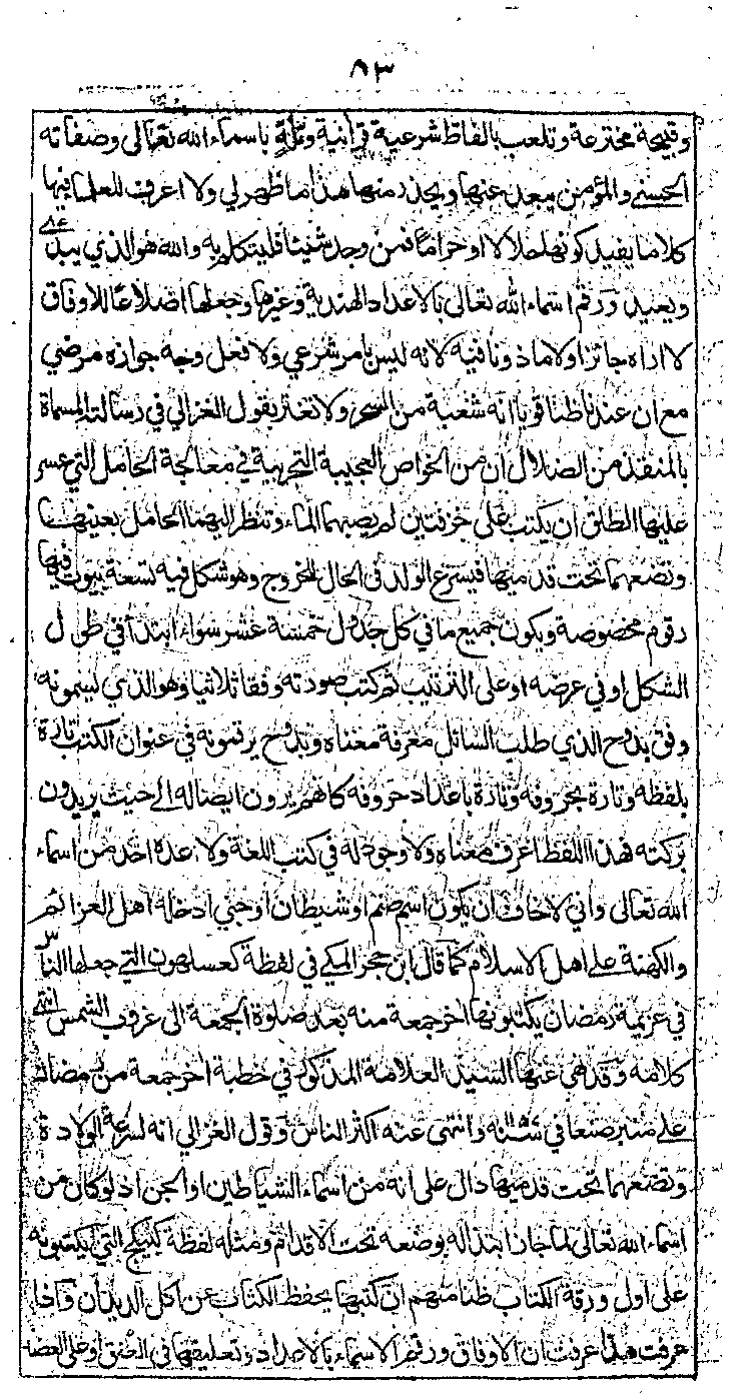 ٨٣
وقبيحة مخترعة وتلعب بالفاظ شرعية قرآنية وتلة باسماء الله تعالى وصفاته
الحسنى والمؤمن يبعد عنها ويحذر منها هذا ما ظهر لي ولا اعرف للعلماء فيها
كلاما يفيد كونها حلالا او حراما فمن وجد شيئا فليتكلم به والله هو الذي يبدئ
ويعيد ورقم اسماء الله تعالى بالاعداد الهندية وغيرها وجعلها اضلاعا للاوفاق
لا اراه جائزا ولا ماذونا فيه لانه ليس بامر شرعي ولا نعل وجه جوازه مرضي
مع ان عند ناظنا قويا انه شعبة من السحر ولا تغتر بقول الغزالي في رسالته المسماة
بالمنقذ من الضلال ان من الخواص العجيبة التجربية في معالجة الحامل التي عسر
عليها الطلق ان يكتب على خرقتين لم يصبهما الماء وتنظر اليهما الحامل بعينها
وتضعهما تحت قدميها فيسرع الولد في الحال للخروج وهو شكل فيه تسعة بيوت فيها
رقوم مخصوصة ويكون جميع ما في كل جدول خمسة عشر سواء ابتدأ في طول
الشكل او في عرضه او على الترتيب ثم كتب صورته وفقا ثلاثيا وهو الذي يسمونه
وفق بدوح الذي طلب السائل معرفة معناه وبدوح يرقمونه في عنوان الكتب تارة
بلفظه وتارة بحروفه وتارة باعداد حروفه كانهم يرون ايصاله الى حيث يريدون
بركته فهذا اللفظ اعرف معناه ولا وجود له في كتب اللغة ولا عده احد من اسماء
الله تعالى واني لاخاف ان يكون اسم صنم او شيطان او جني ادخله اهل العزائم
والكهنة على اهل الاسلام كما قال ابن حجر المكي في لفظة كعسلهون التي جعلها الناس
في عزيمة رمضان يكتبونها اخر جمعة منه بعد صلوة الجمعة الى غروب الشمس انتهى
كلامه وقد نهى عنها السيد العلامة المذكور في خطبة اخر جمعة من رمضان
على منبر صنعا في سنة وانتهى عنه اكثر الناس وقول الغزالي انه لسرعة الولادة
وتضعهما تحت قدميها دال على انه من اسماء الشياطين او الجن اذ لو كان من
اسماء الله تعالى لما جاز ابتذاله بوضعه تحت الاقدام ومثله لفظة كبيكج التي يكتبونه
على اول ورقة الكتاب ظنا منهم ان كتبها يحفظ الكتاب عن اكل الديدان واذا
عرفت هذا عرفت ان الاوفاق ورقم الاسماء بالاعداد وتعليقها في العنق او على العضد